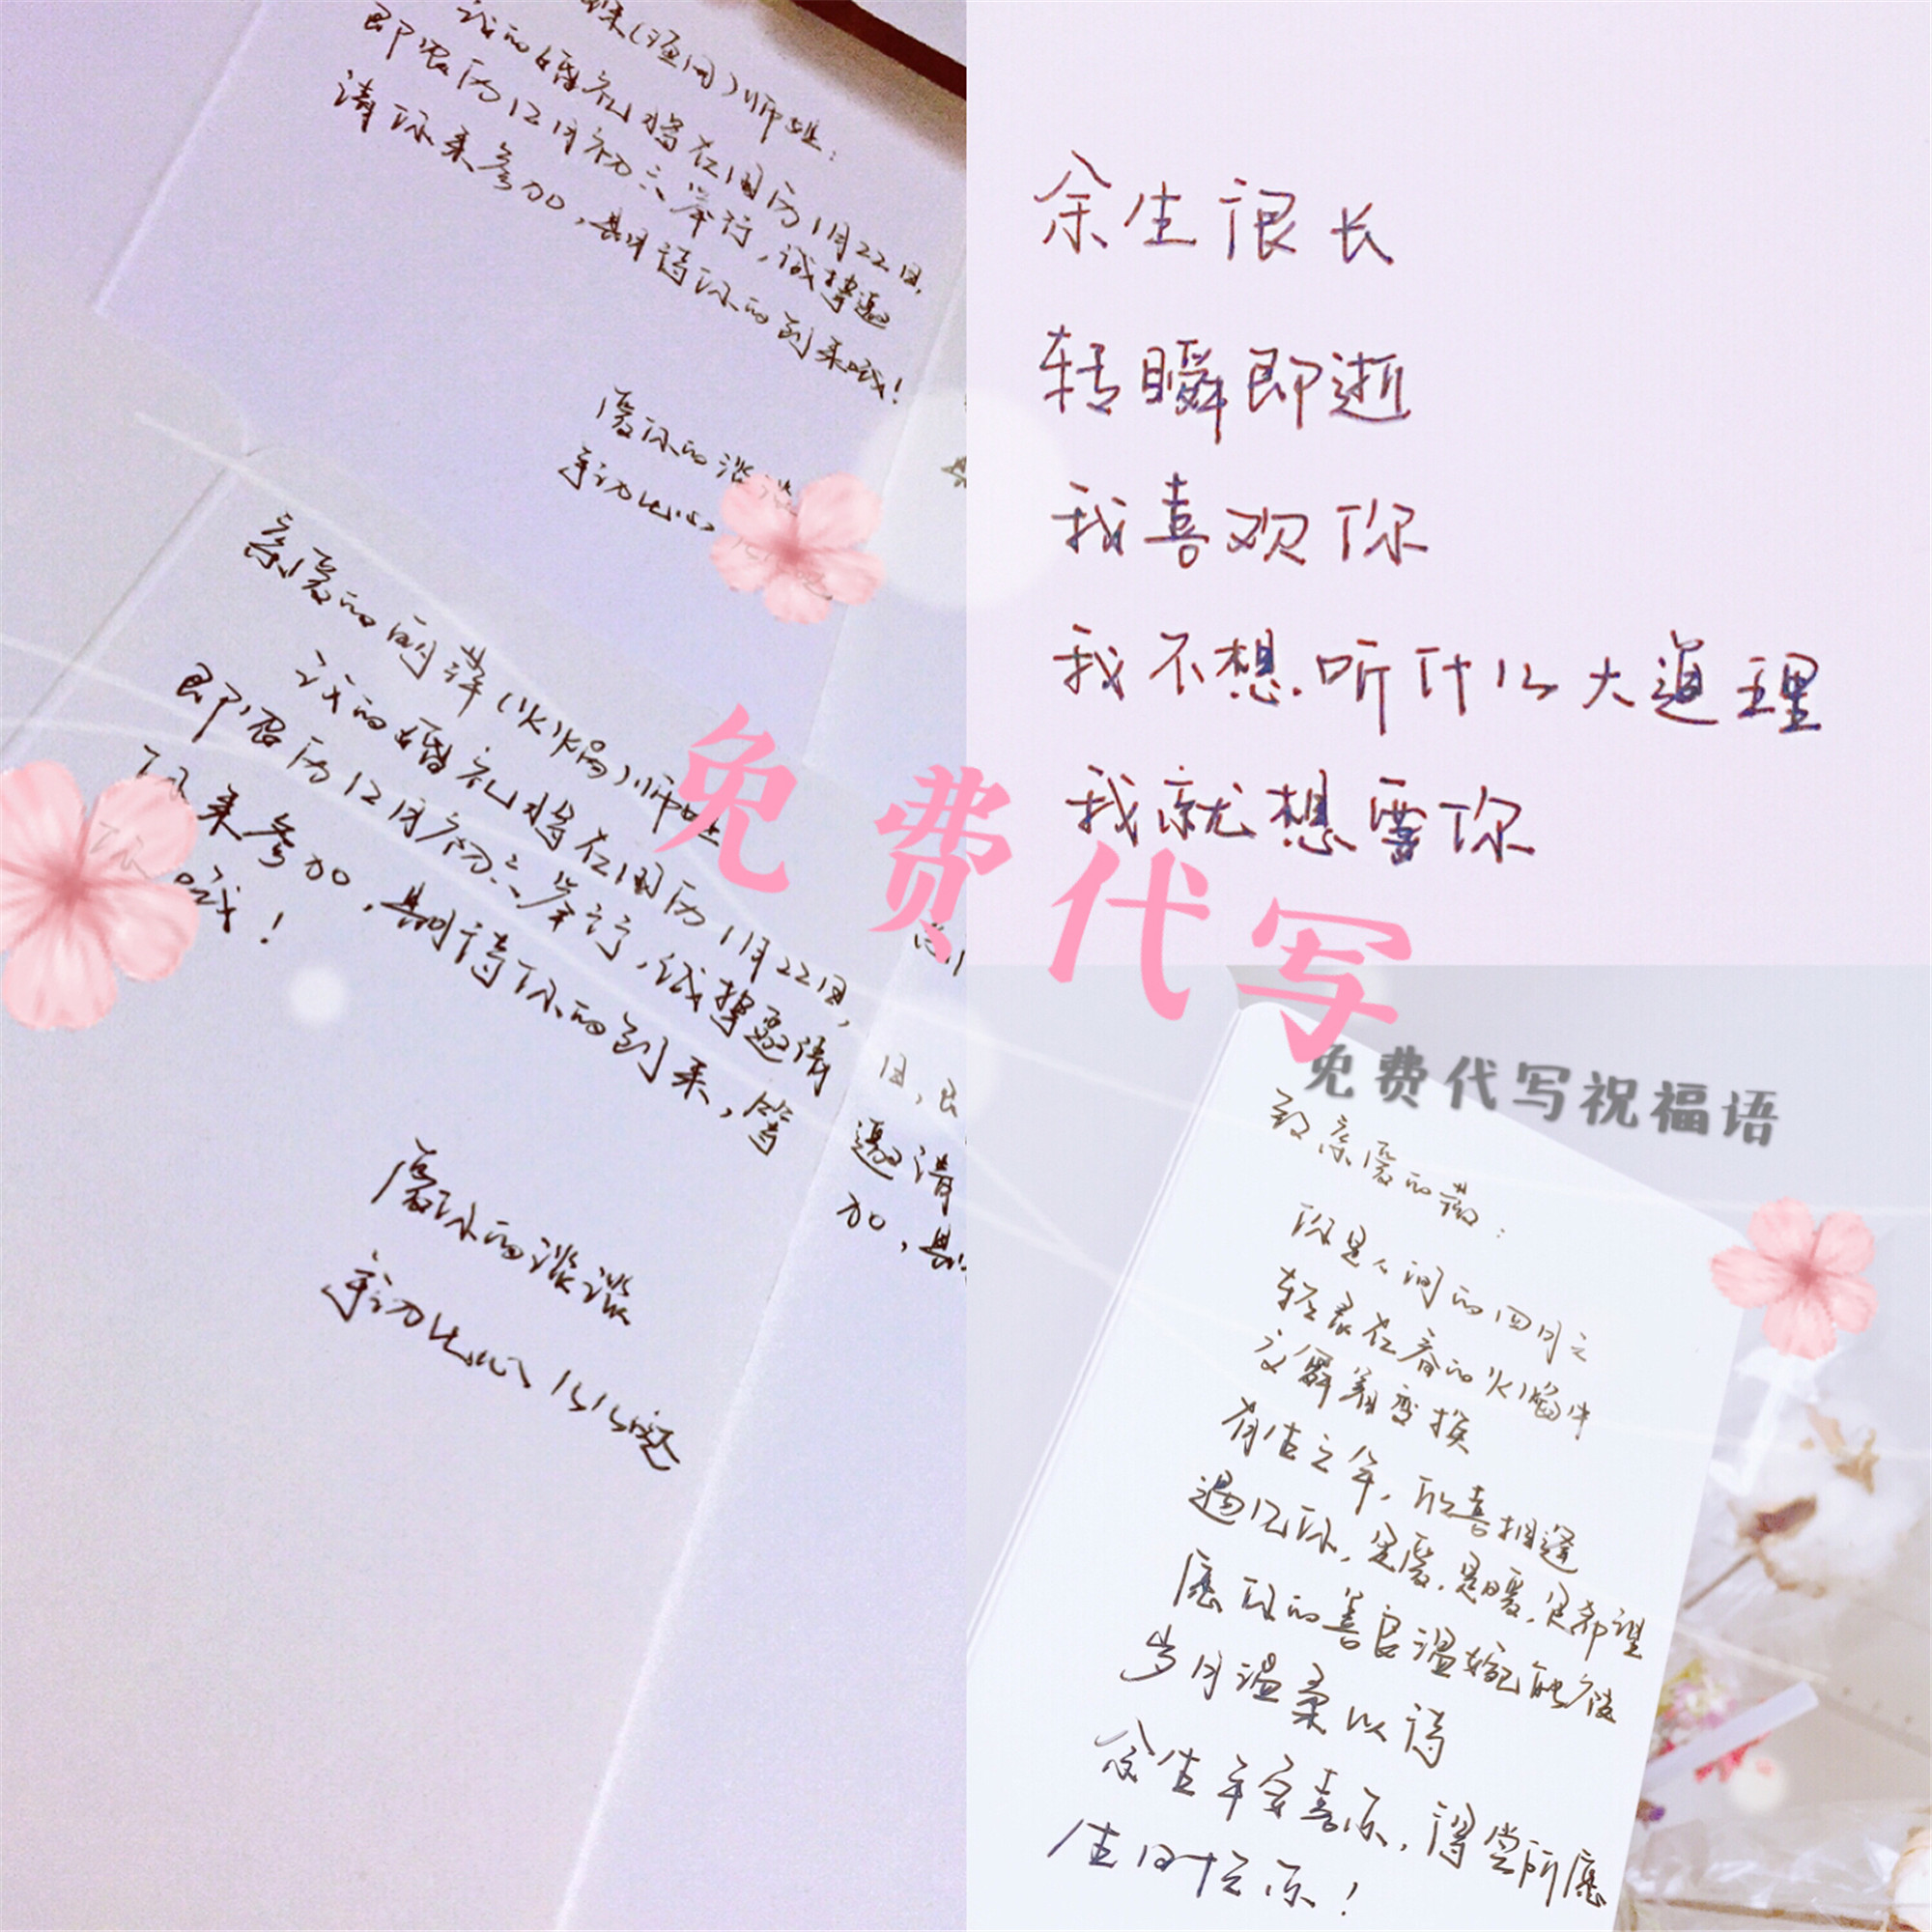 我的婚礼将在国历1月22日,
即农历12月初六举行,诚挚邀
请你来参加,期待你的到来哦!
爱你的淡
亲切比心
亲爱的丽萍(火火锅)师姐
我的婚礼将在国历1月22日,
即农历12月初六举行,诚挚邀请
你来参加,期待你的到来,等
你哦!
爱你的淡淡
亲切比心
余生很长
转瞬即逝
我喜欢你
我不想听什么大道理
我就想要你
免费代写
免费代写祝福语
致亲爱的薇:
你是人间的四月天
轻灵在春的光焰中
交舞着变换
有生之年,欣喜相逢
遇见你,是爱,是暖,是希望
愿你的善良温婉能被
岁月温柔以待
余生平安喜乐,得尝所愿
生日快乐!